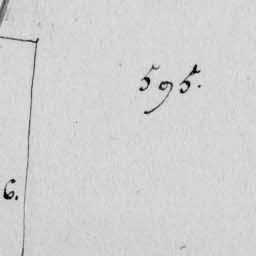 595.
6.